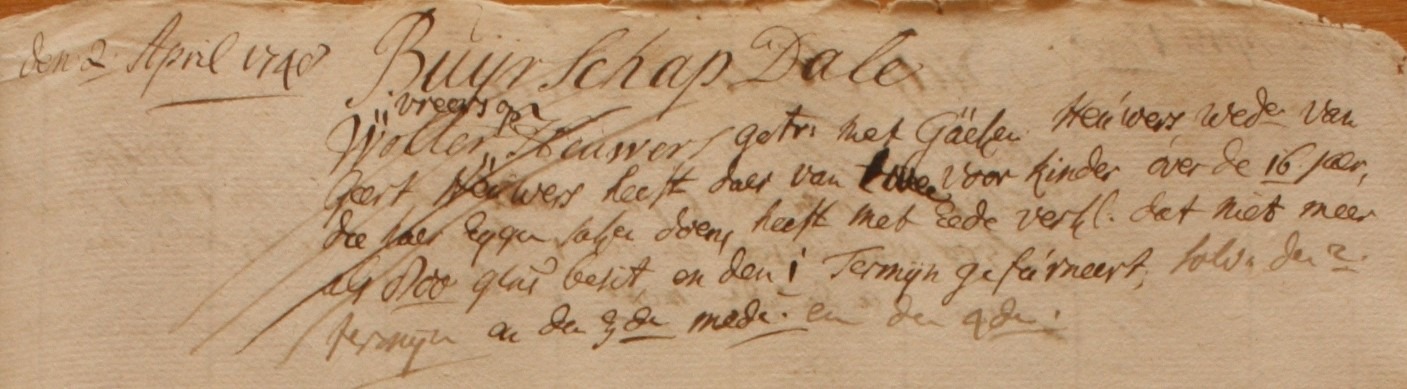 den 2. April 1748 Buyrschap Dale
vreers op
Wolter Heuwers getr: met Gäeħen Heüwers wede van
Geert Heüwers heeft daer van twee voor kinder over de 16 jaer,
die haer Eygen saken doen, heeft met Eede verkl. dat niet meer
als 800 glns besit, en den 1 Termijn gefúrneert, solv: den 2
termijn en den 3den mede: en den 4den: